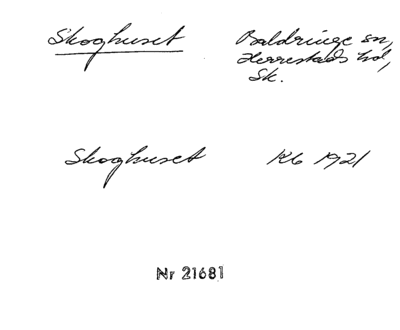 Skoghuset Baldringe sn,
Herrestads hd,
Sk.
Skoghuset Kb 1921
Nr 21681